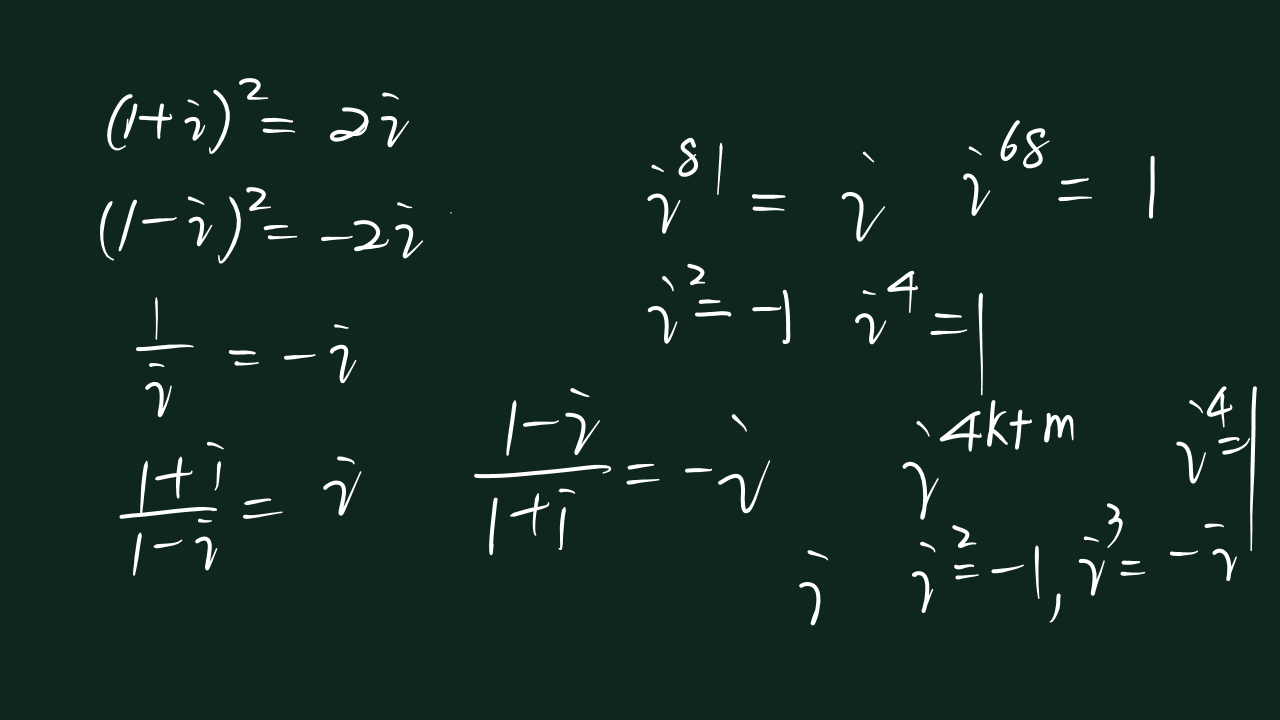 (1+i)² = 2i
(1-i)² = -2i
1/i = -i
(1+i)/(1-i) = i
(1-i)/(1+i) = -i
i⁸¹ = i i⁶⁸ = 1
i² = -1 i⁴ = 1
i^(4k+m) i⁴ = 1
i i² = -1, i³ = -i